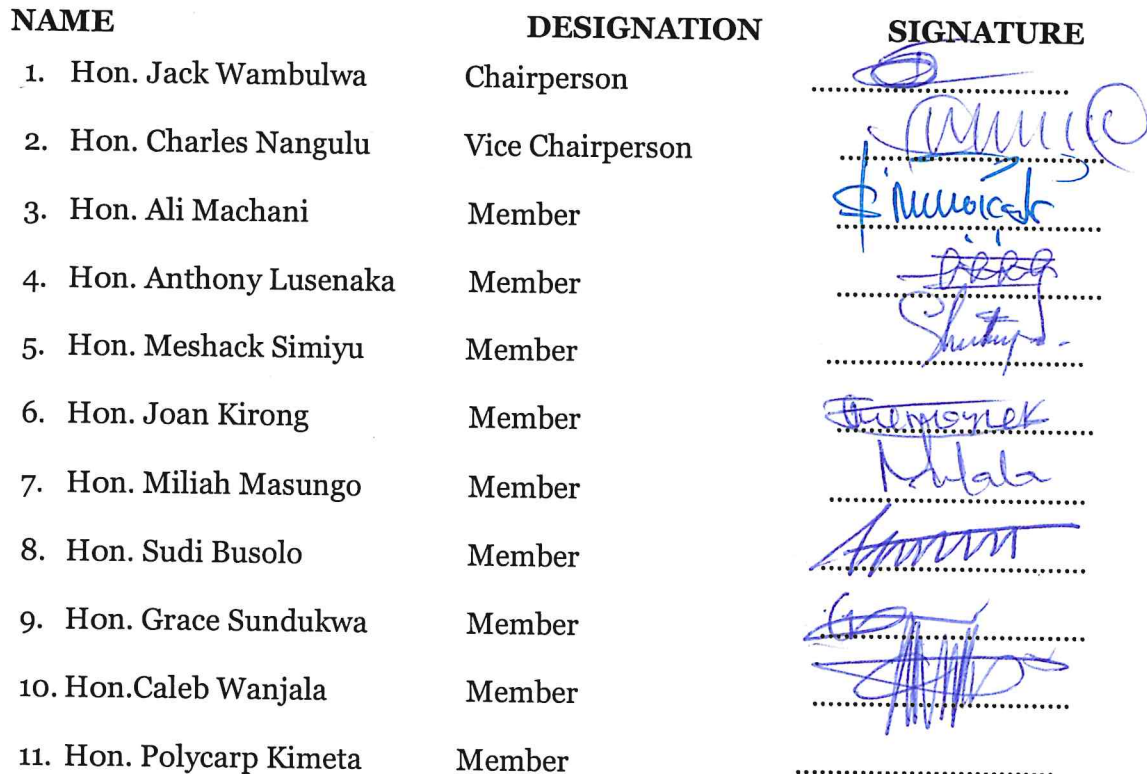 NAME DESIGNATION SIGNATURE
1. Hon. Jack Wambulwa Chairperson ..............................
2. Hon. Charles Nangulu Vice Chairperson ..............................
3. Hon. Ali Machani Member ..............................
4. Hon. Anthony Lusenaka Member ..............................
5. Hon. Meshack Simiyu Member ..............................
6. Hon. Joan Kirong Member ..............................
7. Hon. Miliah Masungo Member ..............................
8. Hon. Sudi Busolo Member ..............................
9. Hon. Grace Sundukwa Member ..............................
10. Hon.Caleb Wanjala Member ..............................
11. Hon. Polycarp Kimeta Member ..............................